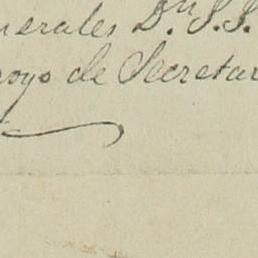 nerales Dn. J. J.
royo de Secretar